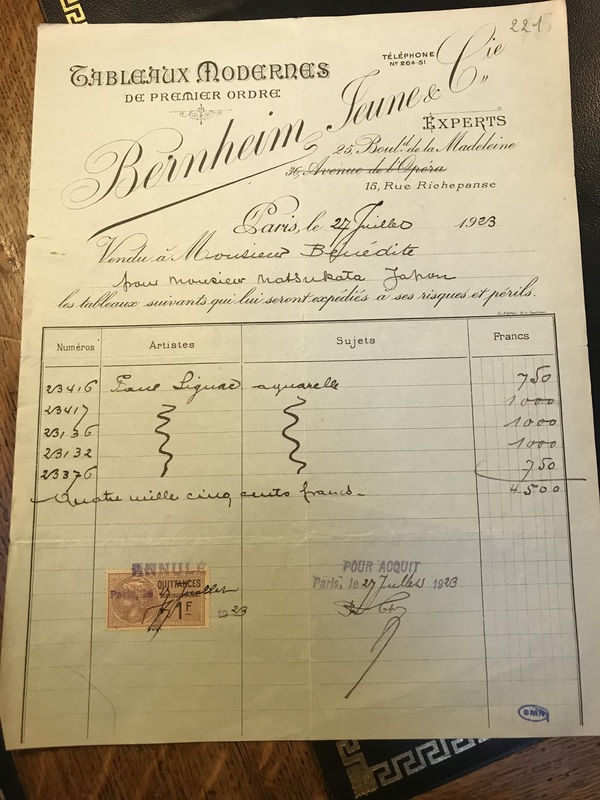 221
TABLEAUX MODERNES
DE PREMIER ORDRE
TÉLÉPHONE
No 264-51
Bernheim Jeune & Cie
EXPERTS
25, Bould de la Madeleine
36, Avenue de l'Opéra
15, Rue Richepanse
Paris, le 27 Juillet 1923
Vendu à Monsieur Bénédite
pour Monsieur Matsukata Japon
les tableaux suivants qui lui seront expédiés à ses risques et périls.
Numéros Artistes Sujets Francs
23416 Paul Signac aquarelle 750
23417 1000
23136 1000
23132 1000
23376 750
Quatre mille cinq cents francs 4500
ANNULÉ
QUITTANCES
Paris, le 27 Juillet
1F
1923
POUR ACQUIT
Paris, le 27 Juillet 1923
BMN